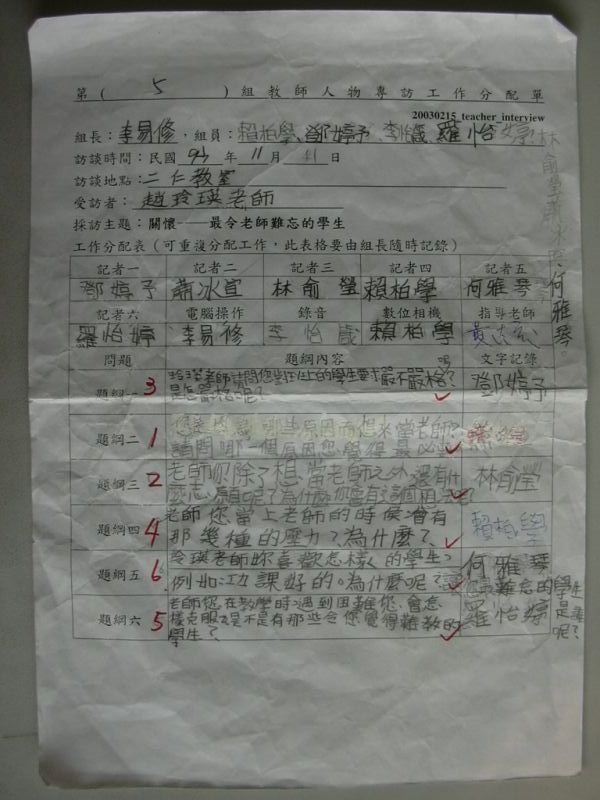 第（ 5 ）組教師人物專訪工作分配單
20030215_teacher_interview
組長：李易修，組員：賴柏學、鄧婷予、李怡葳、羅怡婷、林俞瑩、蕭冰宜、何雅琴。
訪談時間：民國 93 年 11 月 日
訪談地點：二仁教室
受訪者：趙玲瑛老師
採訪主題：關懷──最令老師難忘的學生
工作分配表（可重複分配工作，此表格要由組長隨時記錄）
記者一 記者二 記者三 記者四 記者五
鄧婷予 蕭冰宜 林俞瑩 賴柏學 何雅琴
記者六 電腦操作 錄音 數位相機 指導老師
羅怡婷 李易修 李怡葳 賴柏學
問題 題綱內容 文字記錄
題綱一 3 玲瑛老師請問您對班上的學生要求嚴不嚴格？ 鄧婷予
是怎麼嚴格呢？
題綱二 1 您是為哪些原因而想來當老師？
請問哪一個原因您覺得最
題綱三 2 老師你除了想當老師之外還有什 林俞瑩
麼志願呢？為什麼你會有這個
題綱四 4 老師您當上老師的時侯，會有 賴柏學
那幾種的壓力？為什麼？
題綱五 6 玲瑛老師妳喜歡怎樣的學生？ 何雅琴
例如：功課好的。為什麼呢？您最難忘的學生是誰呢？
題綱六 5 老師您在教學時遇到困難您會怎 羅怡婷
樣克服？是不是有那些令您覺得難教的
學生？